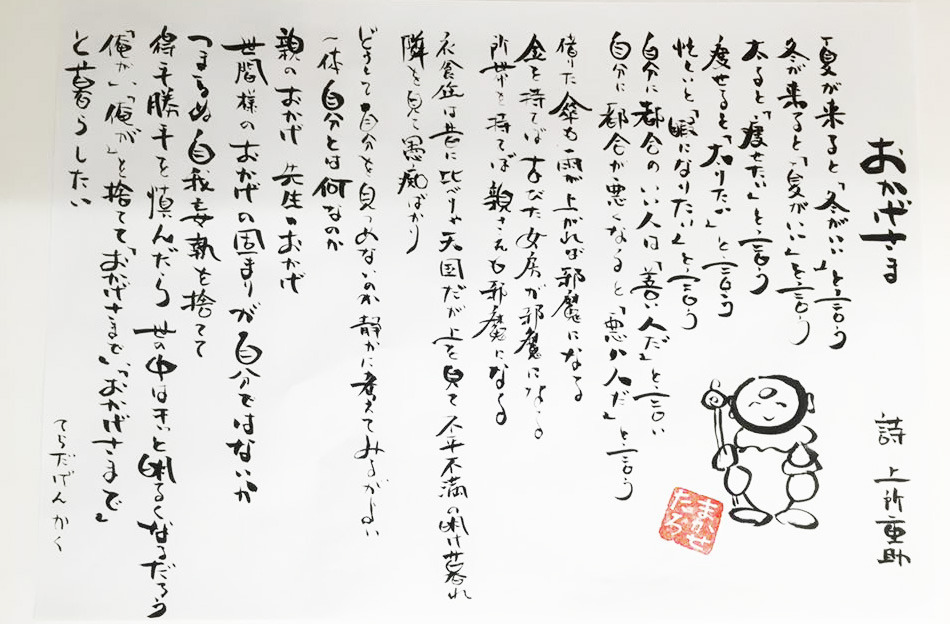 おかげさま
詩 上所重助
夏が来ると「冬がいい」と言う
冬が来ると「夏がいい」と言う
太ると「痩せたい」と言う
痩せると「太りたい」と言う
忙しいと「暇になりたい」と言う
自分に都合のいい人は「善い人だ」と言い
自分に都合が悪くなると「悪い人だ」と言う
借りた傘も雨が上がれば邪魔になる
金を持てば古びた女房が邪魔になる
所帯を持てば親さえも邪魔になる
衣食住は昔に比べりゃ天国だが上を見て不平不満の明け暮れ
隣を見て愚痴ばかり
どうして自分を見つめないのか静かに考えてみるがよい
一体自分とは何なのか
親のおかげ 先生のおかげ
世間様のおかげの固まりが自分ではないか
つまらぬ自我妄執を捨てて
得手勝手を慎んだら 世の中はきっと明るくなるだろう
「俺が」、「俺が」を捨てて「おかげさまで」、「おかげさまで」
と暮らしたい
てらだげんかく
まかせ
たろ